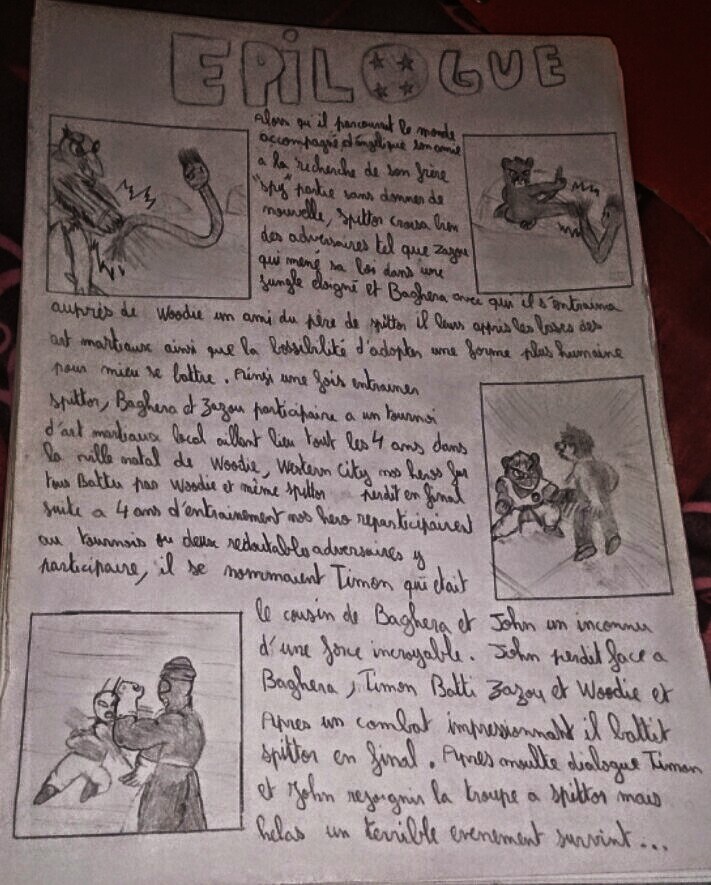 EPILOGUE
Alors qu'il parcourrait le monde
accompagné d'Angélique son amie
a la recherche de son frère
"Spy" partie sans donner de
nouvelle, Spittor croisa bien
des adversaires tel que Zazou
qui mené sa loi dans une
jungle éloigné et Baghera avec qui il s'entraina
auprès de Woodie un ami du père de spittor il leurs appris les bases des
art martiaux ainsi que la possibilité d'adopter une forme plus humaine
pour mieu se battre. Ainsi une fois entrainer
spittor, Baghera et Zazou participaire a un tournoi
d'art martiaux local aillant lieu tout les 4 ans dans
la ville natal de Woodie, Western City nos heros fur
tous Battu par Woodie et même spittor perdit en final
suite a 4 ans d'entrainement nos hero reparticipairent
au tournois ou deux redoutable adversaires y
participaire, il se nommaient Timon qui était
le cousin de Baghera et John un inconnu
d'une force incroyable. John perdit face a
Baghera, Timon Batti Zazou et Woodie et
Apres un combat impressionnant il battit
spittor en final. Apres moulte dialogue Timon
et John rejoignir la troupe a spittor mais
helas un terrible evenement survint...